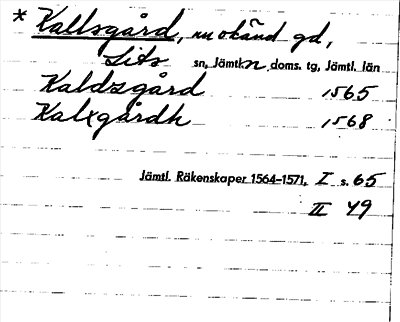 * Kallsgård, nu okänd gd,
Lits sn, Jämtl:n doms. tg, Jämtl. län
Kaldzgård 1565
Kalxgårdh 1568
Jämtl. Räkenskaper 1564-1571, I s. 65
II 49